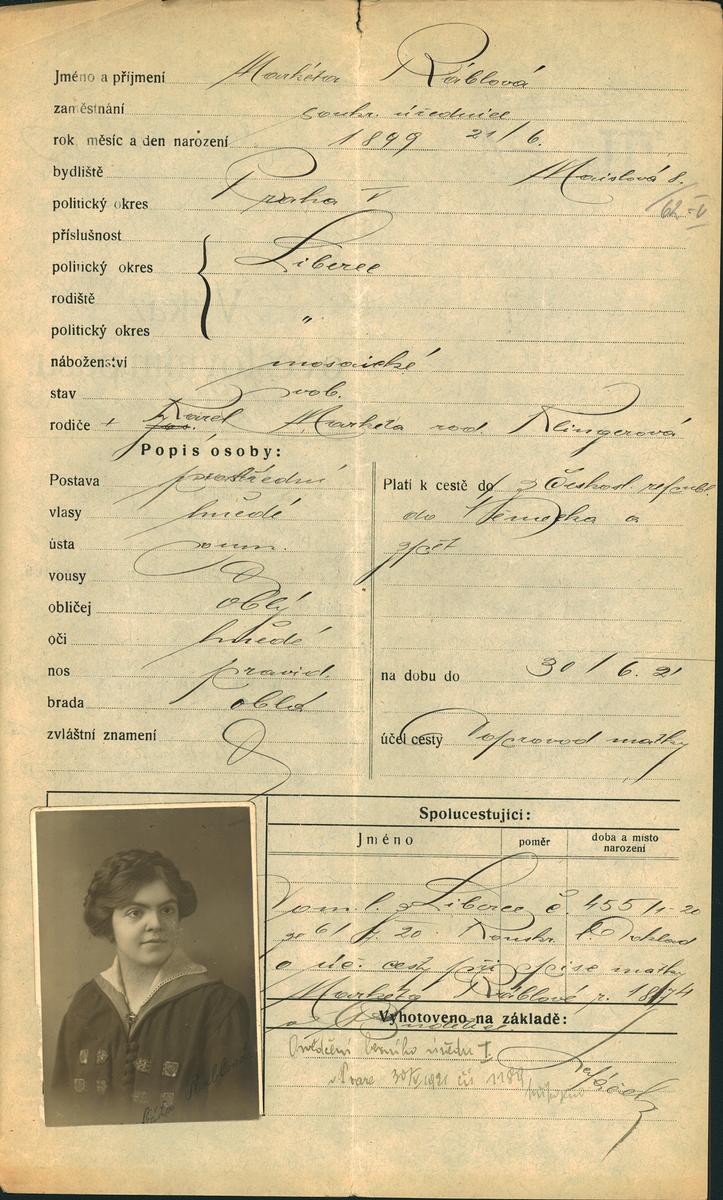 Jméno a příjmení Markéta Ráblová
zaměstnání soukr. úřednice
rok měsíc a den narození 1899 21/6.
bydliště Maislová 8.
politický okres Praha V 62-V
příslušnost
politický okres Liberec
rodiště
politický okres "
náboženství mosaické
stav svob.
rodiče + Karel Markéta rod. Klingerová
Popis osoby:
Postava prostřední
vlasy hnědé
ústa soum.
vousy
obličej oblý
oči hnědé
nos pravid.
brada oblá
zvláštní znamení
Platí k cestě do z Českosl. republ.
do Německa a
zpět
na dobu do 30/6. 21
účel cesty Doprovod matky
Spolucestující:
Jméno poměr doba a místo narození
Dom. l. z Liberec č. 455/1-20
ze 6/ 20. Doklad
o úč. cesty při spise matky
Markéta Ráblové r. 1874
Vyhotoveno na základě:
Osvědčení berního úřadu I
v Praze 30/V 1921 čís 1189
Ráblová